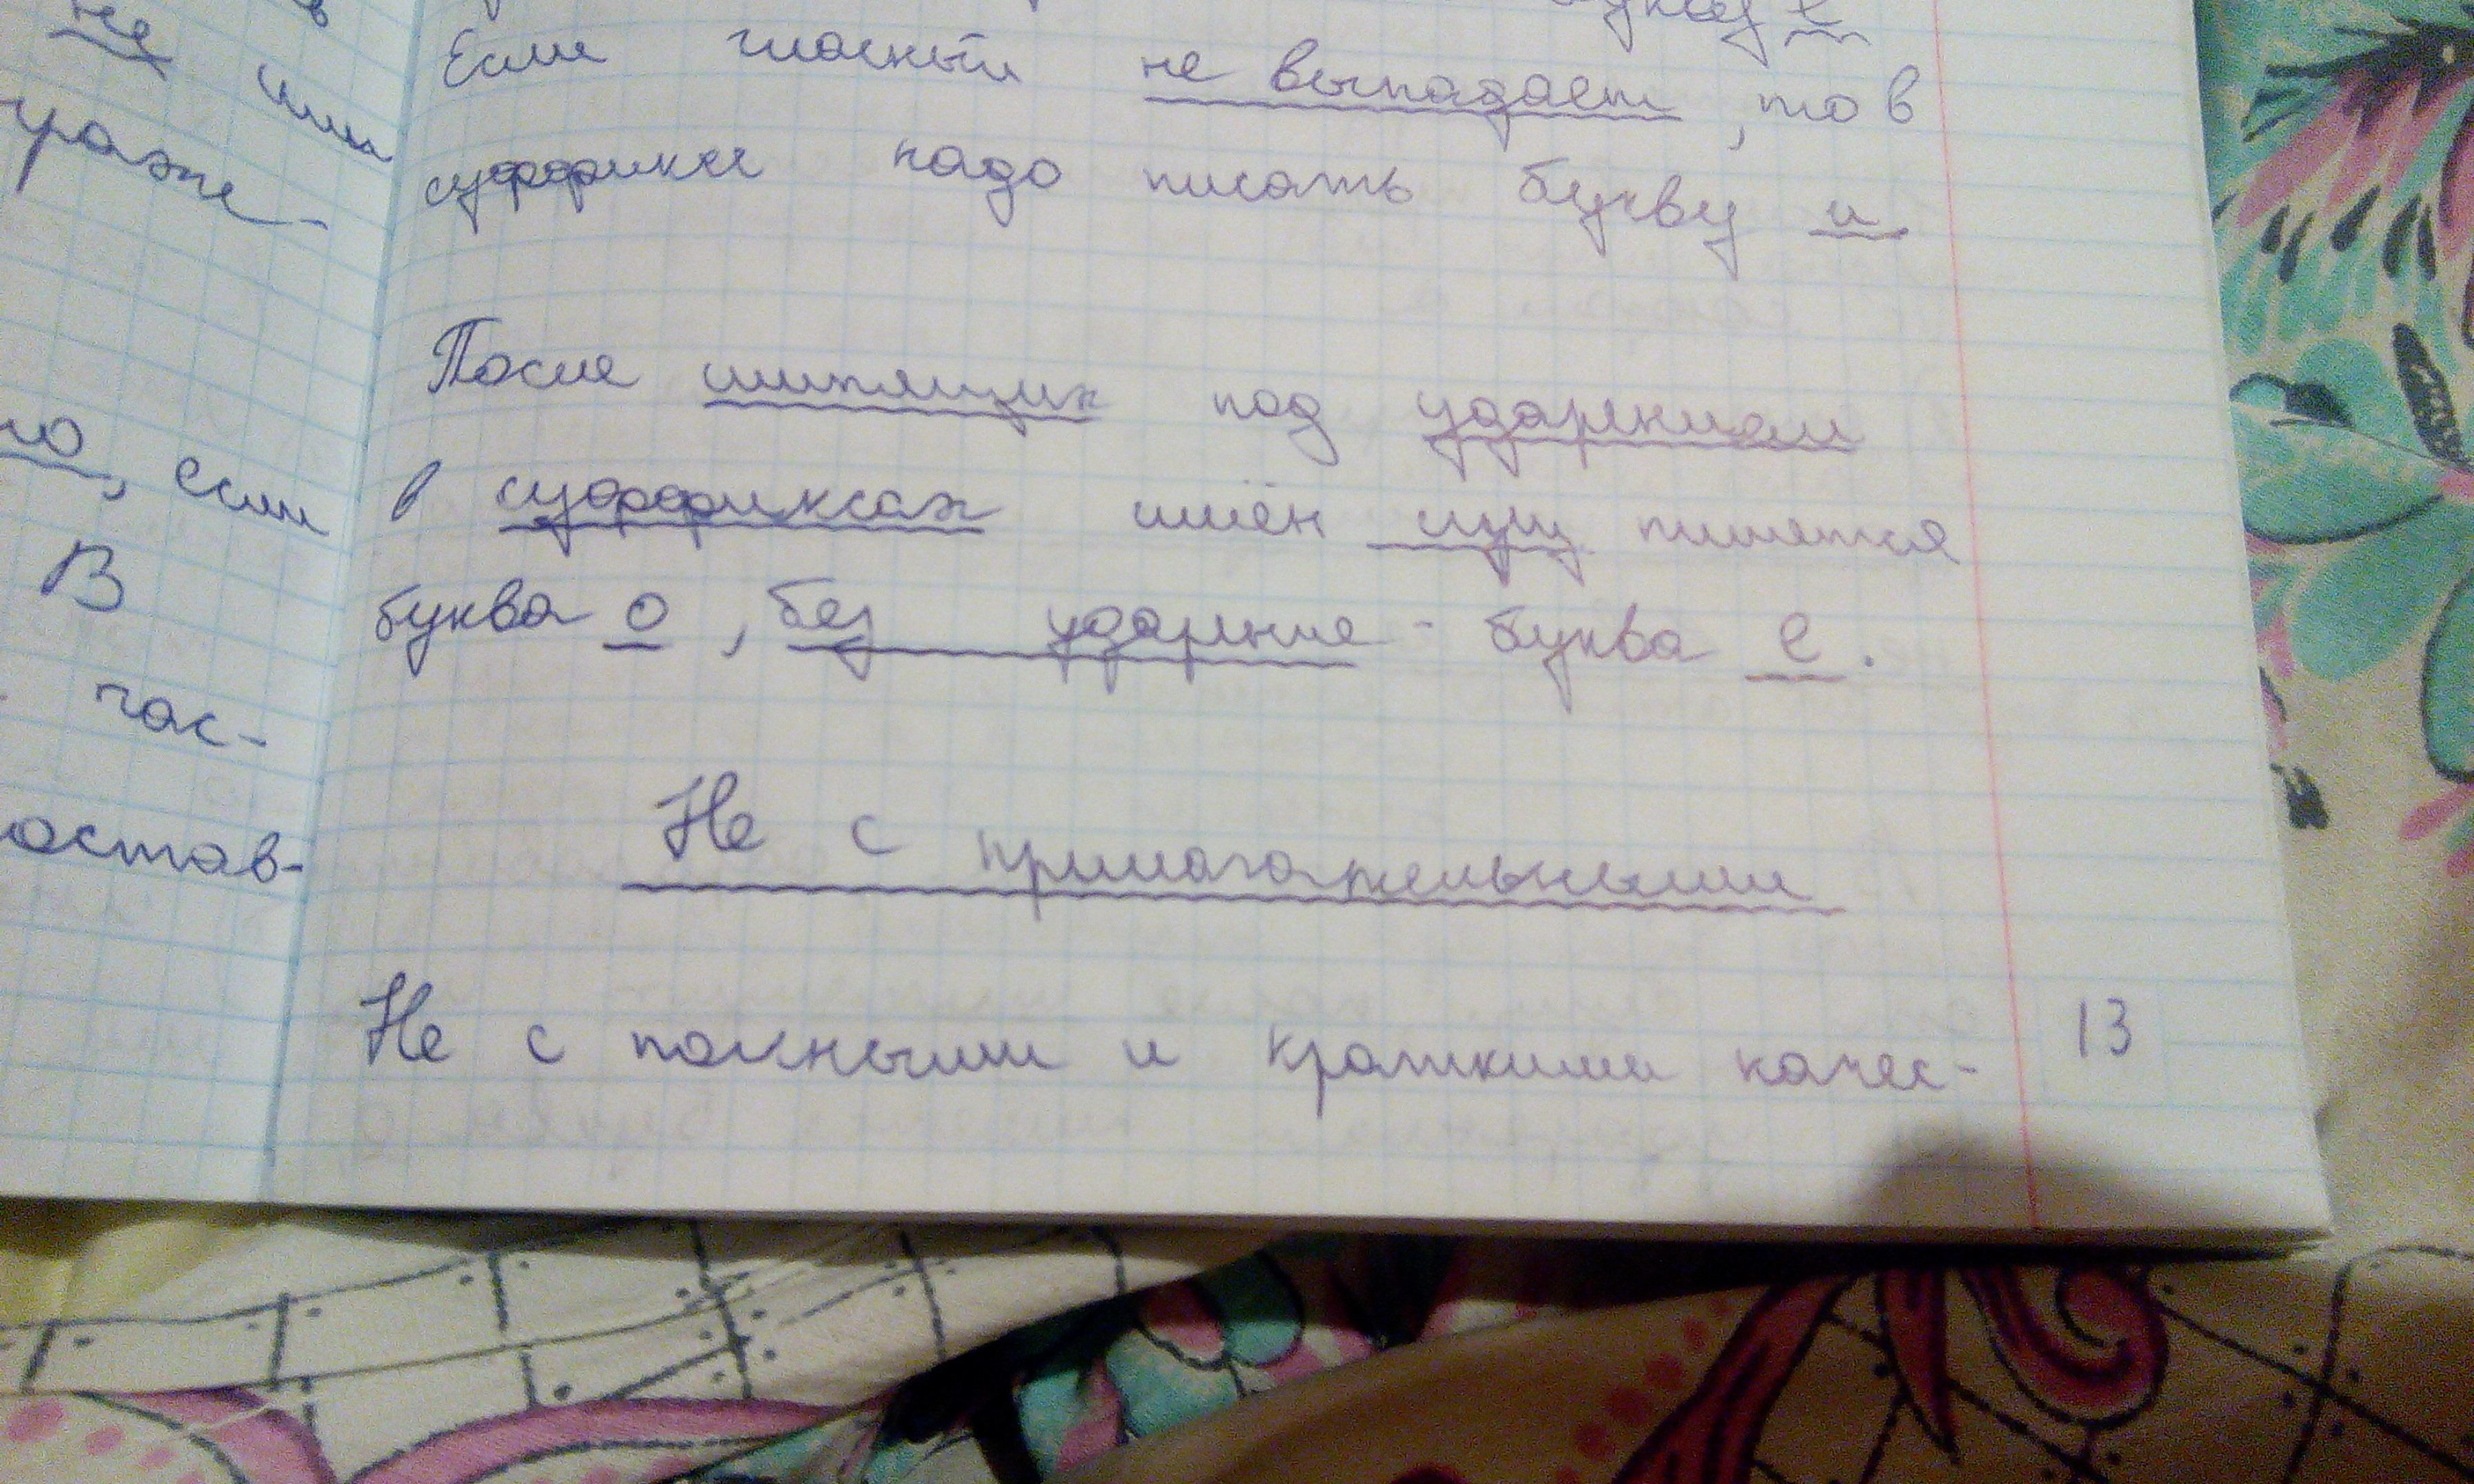 не или
раже-
но, если
В
час-
остав-
букву е
Если гласный не выпадает, то в
суффиксе надо писать букву и.
После шипящих под ударением
в суффиксах имён сущ. пишется
буква о, без ударение - буква е.
Не с прилагательными
Не с полными и краткими качес-
13